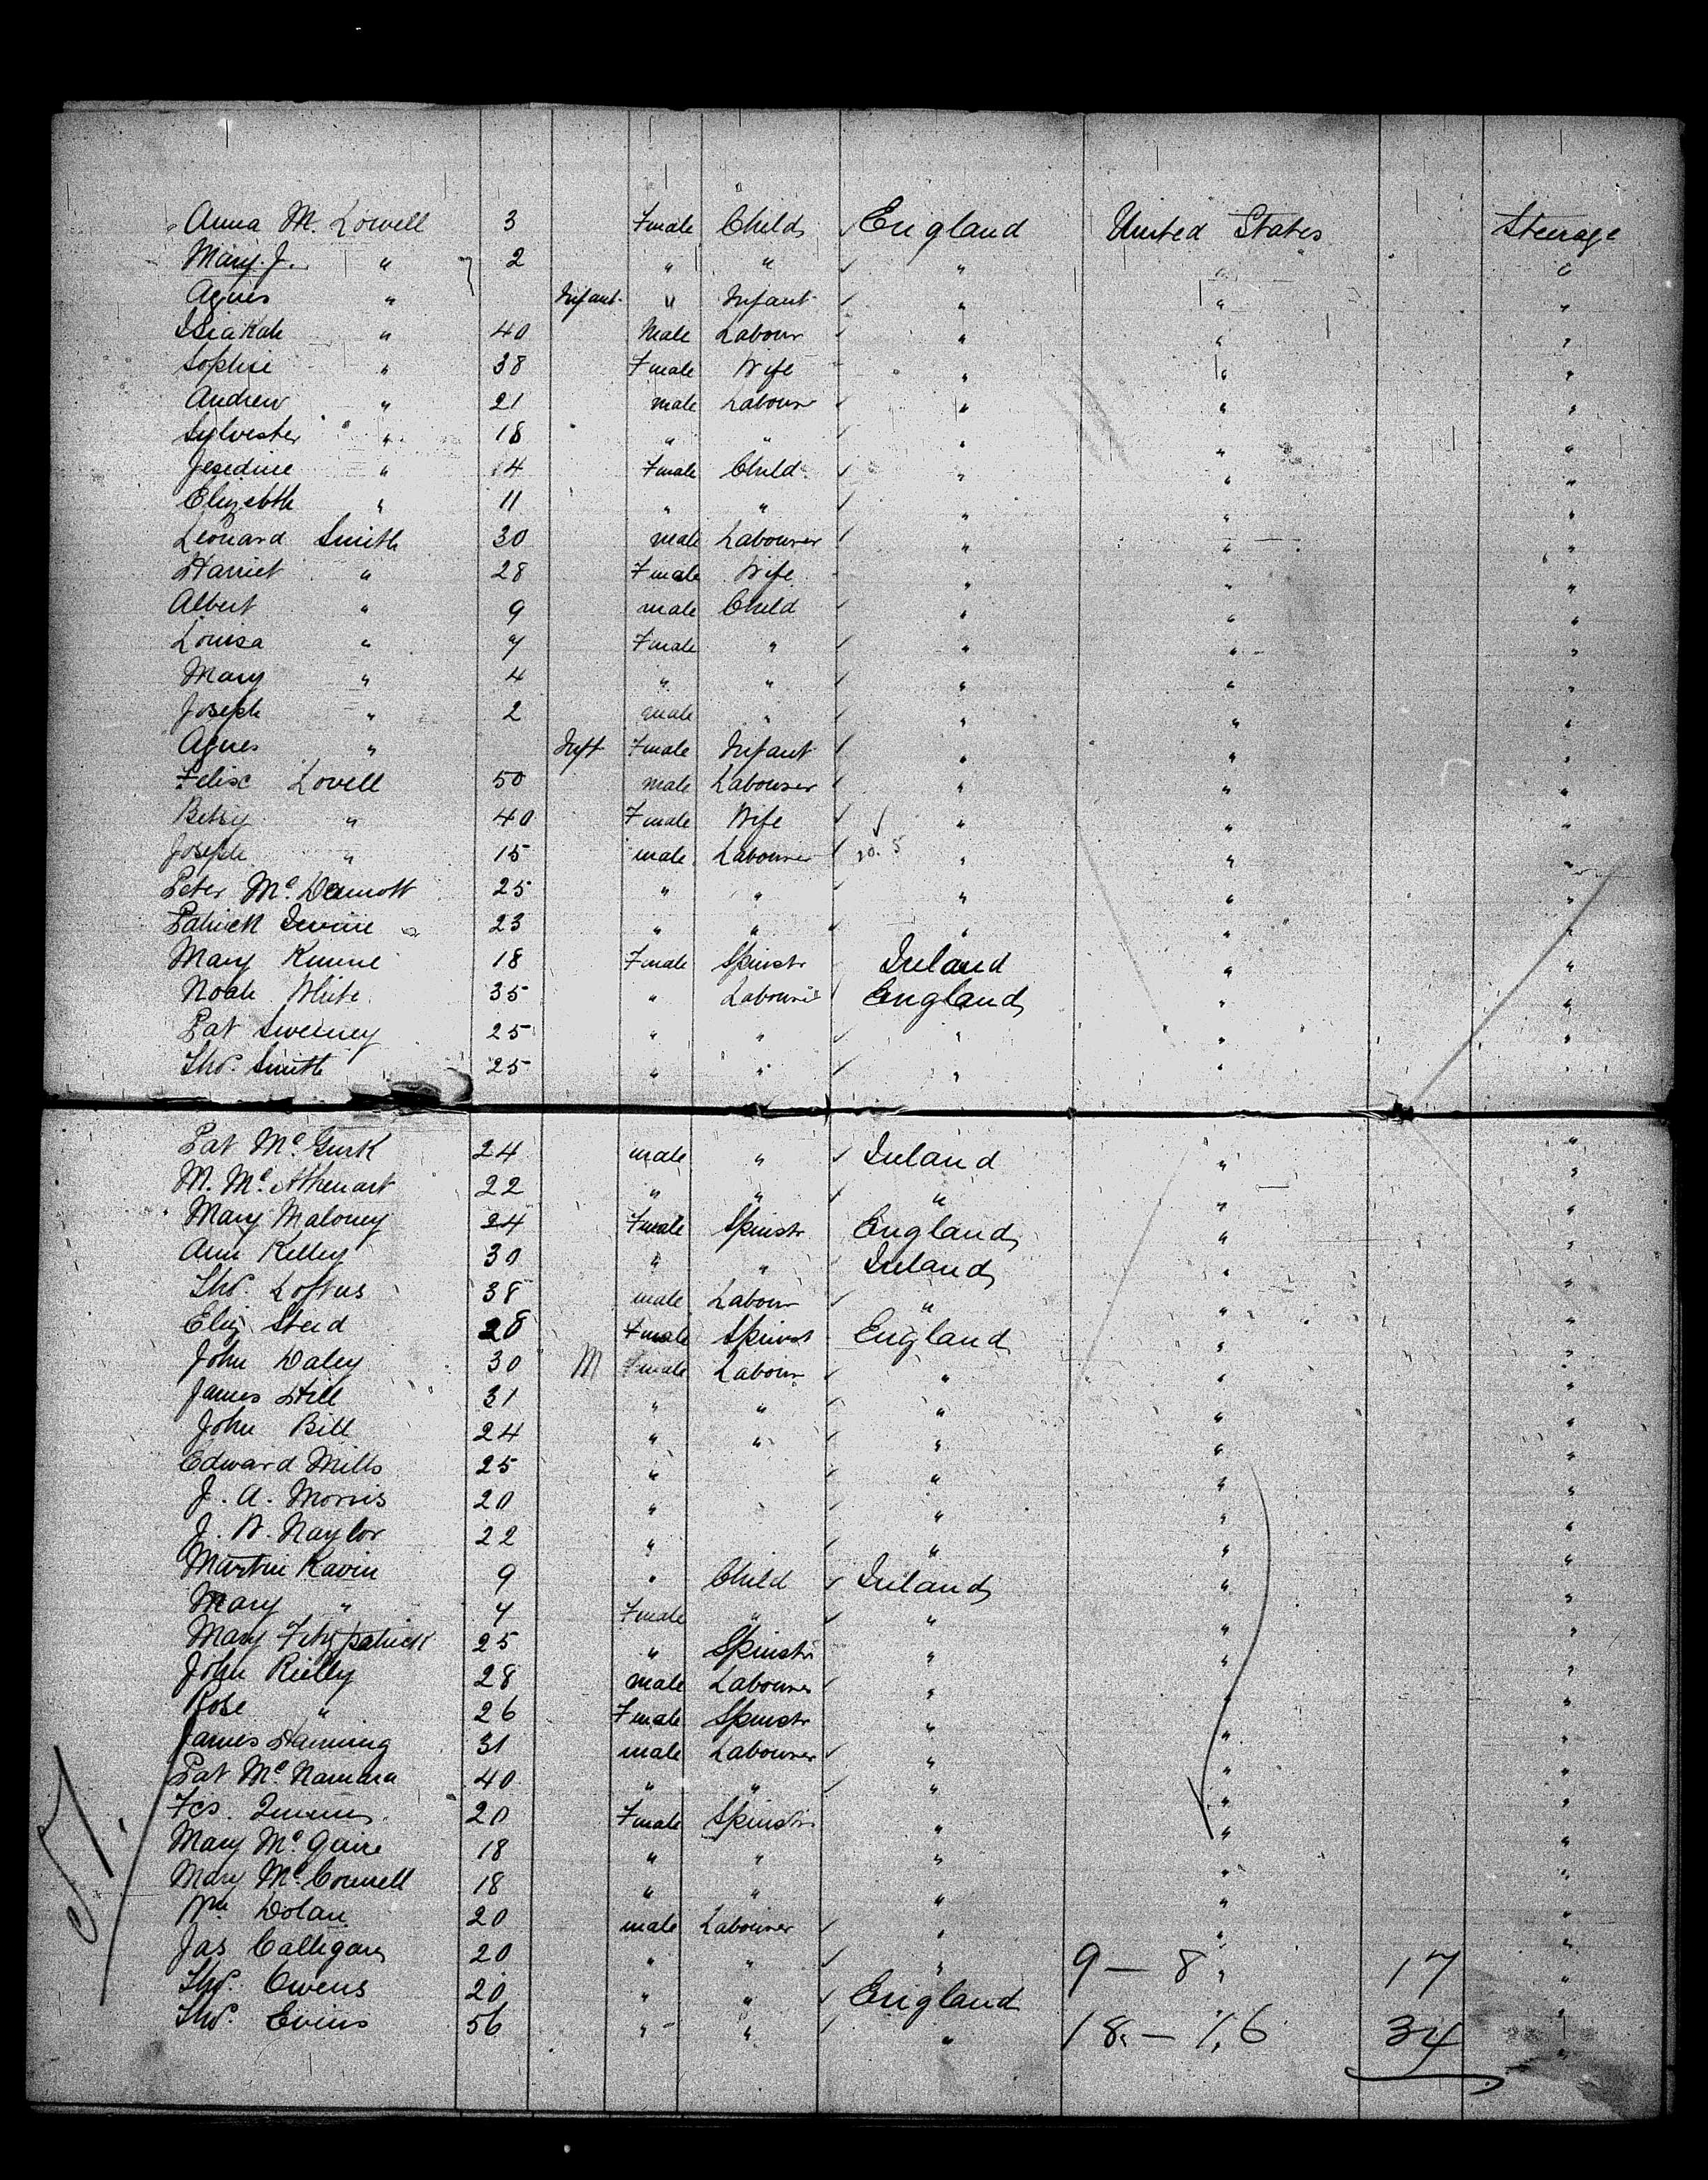 Anna M. Lowell 3 Female Child England United States Steerage
Mary J. " 2 " " " " "
Agnes " Infant " Infant " " "
" 40 Male Labour " " "
Sophie " 38 Female Wife " " "
Andrew " 21 male Labour " " "
Sylvester " 18 " " " " "
" 14 Female Child " " "
Elizebth " 11 " " " " "
Leonard Smith 30 male Labourer " " "
Harriet " 28 Female Wife " " "
Albert " 9 male Child " " "
Louisa " 7 Female " " " "
Mary " 4 " " " " "
Joseph " 2 male " " " "
Agnes " Inft Female Infant " " "
Felix Lovell 50 male Labourer " " "
Betsy " 40 Female Wife " " "
Joseph " 15 male Labourer " " "
Peter Mc Dermott 25 " " " " "
Patrick 23 " " " " "
Mary 18 Female Spinstr Ireland " "
Noah White 35 " Labourer England " "
Pat Sweeney 25 " " " " "
Tho. Smith 25 " " " " "
Pat Mc Gurk 24 male " Ireland " "
M. Mc 22 " " " " "
Mary Maloney 24 Female Spinstr England " "
Ann Kelley 30 " " Ireland " "
Tho. Loftus 38 male Labour " " "
Eliz Stead 28 Female Spinst England " "
John Daley 30 M Female Labour " " "
James Hill 31 " " " " "
John Bill 24 " " " " "
Edward Mills 25 " " " "
J. A. Morris 20 " " " "
J. W. Naylor 22 " " " "
Martin Kavin 9 " Child Ireland " "
Mary " 7 Female " " " "
Mary Fitzpatrick 25 " Spinstr " " "
John Reilly 28 male Labourer " " "
Rose " 26 Female Spinstr " " "
James 31 male Labourer " " "
Pat Mc Namara 40 " " " " "
Fcs. 20 Female Spinstr " " "
Mary Mc Guire 18 " " " " "
Mary Mc Connell 18 " " " " "
Wm Dolan 20 male Labourer " " "
Jas Calligan 20 " " " 9 — 8 " 17 "
Tho. Owens 20 " " England " "
Tho. Evins 56 " " " 18 — 16 34 "